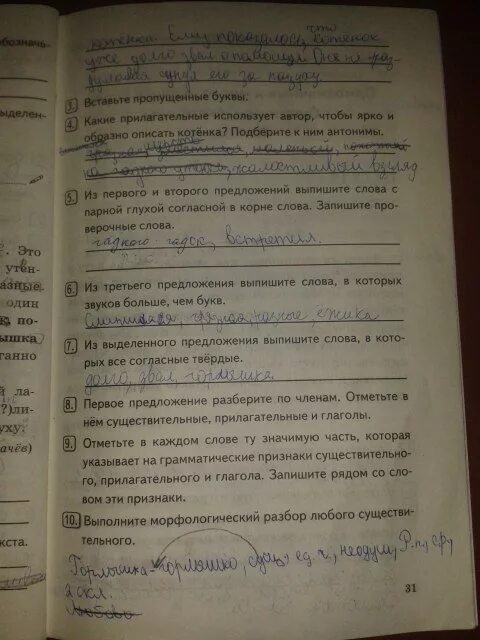 обозначь-
выделен-
. Это
утён-
азные.
один
к, по-
ышка
ганно
й ла-
?)ли-
уху.
ачёв)
кста.
котенка. Ему показалось, что котенок
уже долго звал о помощи. Он не раз-
думывая сунул его за пазуху
3. Вставьте пропущенные буквы.
4. Какие прилагательные использует автор, чтобы ярко и
образно описать котёнка? Подберите к ним антонимы.
жалостливый взгляд
5. Из первого и второго предложений выпишите слова с
парной глухой согласной в корне слова. Запишите про-
верочные слова.
гадкого - гадок, встретил.
6. Из третьего предложения выпишите слова, в которых
звуков больше, чем букв.
Слипшаяся, грязная, разные, ёжика
7. Из выделенного предложения выпишите слова, в кото-
рых все согласные твёрдые.
долго, звал, горлышка
8. Первое предложение разберите по членам. Отметьте в
нём существительные, прилагательные и глаголы.
9. Отметьте в каждом слове ту значимую часть, которая
указывает на грамматические признаки существительно-
го, прилагательного и глагола. Запишите рядом со сло-
вом эти признаки.
10. Выполните морфологический разбор любого существи-
тельного.
Горлышка - горлышко, сущ, ед.ч, неодуш, Р.п, ср,
2 скл.
31